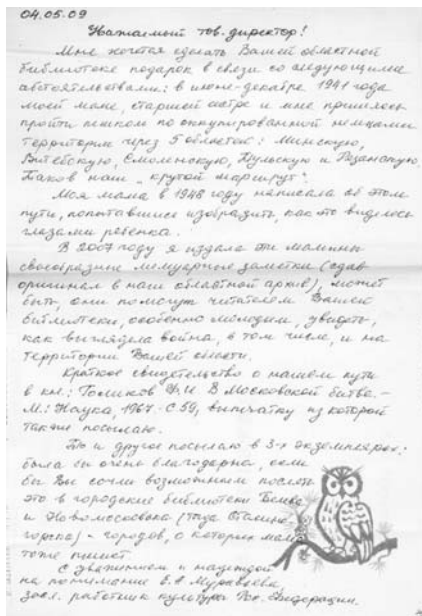 04.05.09
Уважаемый тов. директор!
Мне хочется сделать Вашей областной
библиотеке подарок в связи со следующими
обстоятельствами: в июне-декабре 1941 года
моей маме, старшей сестре и мне пришлось
пройти пешком по оккупированной немцами
территории через 5 областей: Минскую,
Витебскую, Смоленскую, Тульскую и Рязанскую.
Таков наш „крутой маршрут".
Моя мама в 1948 году написала об этом
пути, попытавшись изобразить, как это виделось
глазами ребенка.
В 2007 году я издала эти мамины
своеобразные мемуарные заметки (сдав
оригинал в наш областной архив), может
быть, они помогут читателям Вашей
библиотеки, особенно молодым, увидеть,
как выглядела война, в том числе, и на
территории Вашей области.
Краткое свидетельство о нашем пути
в кн.: Голиков Ф.И. В Московской битве. –
М.: Наука, 1967. – С. 59, выпечатку из которой
также посылаю.
То и другое посылаю в 3-х экземплярах:
была бы очень благодарна, если
бы Вы сочли возможным послать
это в городские библиотеки
и Новомосковска (тогда Сталино-
горска) – городов, о которых мама
тоже пишет.
С уважением и надеждой
на понимание В.А. Муравьева,
засл. работник культуры Рос. Федерации.